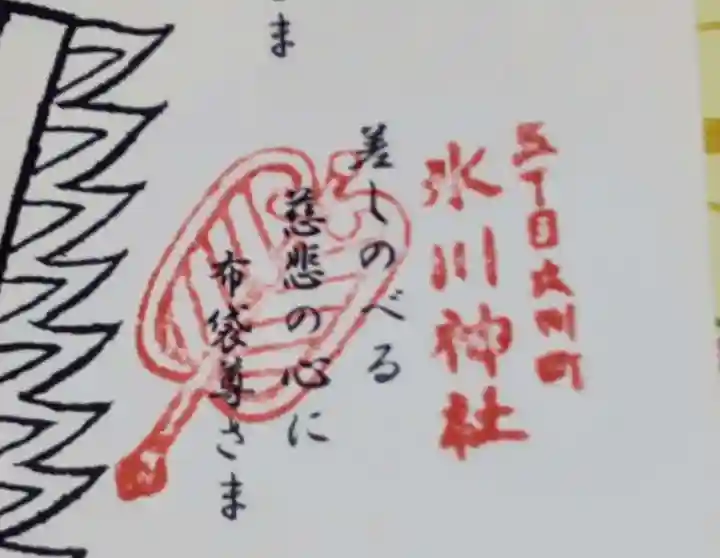 五丁目氷川町
氷川神社
差しのべる
慈悲の心に
布袋尊さま
さま